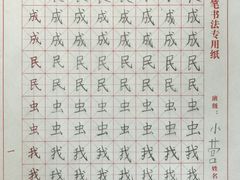 成成成成成成成
成成成成成成成
民民民民民民民
民民民民民民民
虫虫虫虫虫虫虫
虫虫虫虫虫虫虫
我我我我我我我
笔书法专用纸
班级：小营 姓名
一